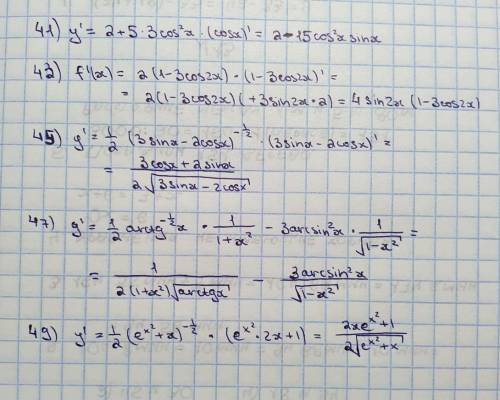 41) y' = 2 + 5 · 3cos²x · (cosx)' = 2 - 15cos²x sinx
43) f'(x) = 2(1-3cos2x) · (1-3cos2x)' =
= 2(1-3cos2x)(+3sin2x · 2) = 4 sin2x (1-3cos2x)
45) y' = 1/2 (3sinx - 2cosx)^(-1/2) · (3sinx - 2cosx)' =
= (3cosx + 2sinx) / (2√(3sinx - 2cosx))
47) y' = 1/2 arctg^(-1/2) x · 1/(1+x²) - 3arcsin²x · 1/√(1-x²) =
= 1/(2(1+x²)√(arctgx)) - 3arcsin²x/√(1-x²)
49) y' = 1/2 (e^(x²) + x)^(-1/2) · (e^(x²) · 2x + 1) = (2xe^(x²) + 1)/(2√(e^(x²) + x))